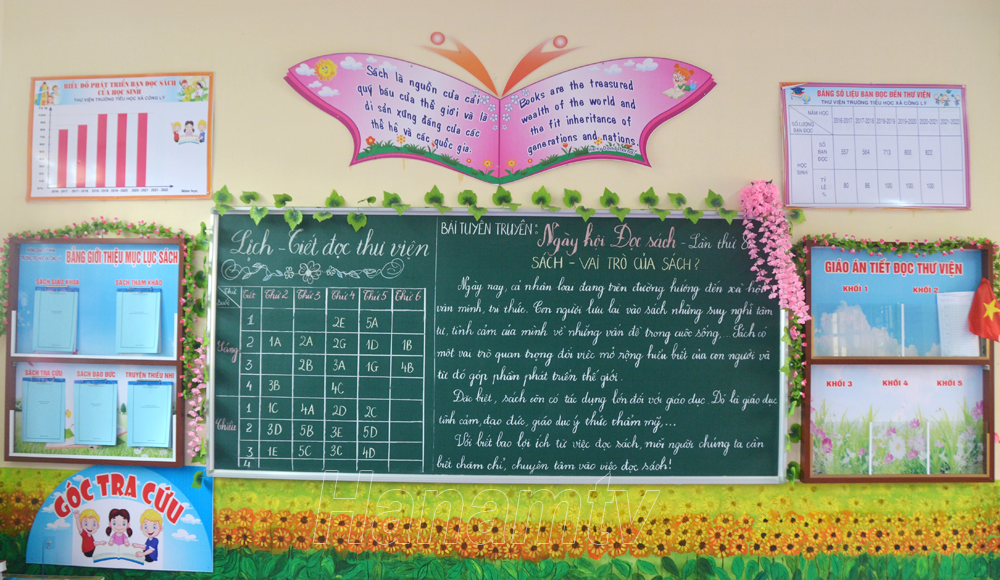 BIỂU ĐỒ PHÁT TRIỂN BẠN ĐỌC SÁCH
CỦA HỌC SINH
THƯ VIỆN TRƯỜNG TIỂU HỌC XÃ CÔNG LÝ
Sách là nguồn của cải
quý báu của thế giới và là
di sản xứng đáng của các
thế hệ và các quốc gia.
Books are the treasured
wealth of the world and
the fit inheritance of
generations and nations.
BẢNG SỐ LIỆU BẠN ĐỌC ĐẾN THƯ VIỆN
THƯ VIỆN TRƯỜNG TIỂU HỌC XÃ CÔNG LÝ
NĂM HỌC
SỐ LƯỢNG
BẠN ĐỌC
2016-2017 2017-2018 2018-2019 2019-2020 2020-2021 2021-2022
HỌC
SINH
SỐ
BẠN
ĐỌC
557 564 710 800 822
TỶ
LỆ
%
BẢNG GIỚI THIỆU MỤC LỤC SÁCH
SÁCH GIÁO KHOA SÁCH THAM KHẢO
SÁCH TRA CỨU SÁCH ĐẠO ĐỨC TRUYỆN THIẾU NHI
GÓC TRA CỨU
Lịch - Tiết đọc thư viện
Thứ
Buổi
Tiết Thứ 2 Thứ 3 Thứ 4 Thứ 5 Thứ 6
Sáng
1 2E 5A
2 1A 2A 2G 1D 1B
3 2B 3A 1G 4B
4 3B 4C
Chiều
1 1C 4A 2D 2C
2 3D 5B 3E 5D
3 1E 5C 3C 4D
4
BÀI TUYÊN TRUYỀN: Ngày hội Đọc sách - Lần thứ
SÁCH - VAI TRÒ CỦA SÁCH?
Ngày nay, cả nhân loại đang trên đường hướng đến xã hội
văn minh, tri thức. Con người lưu lại vào sách những suy nghĩ tâm
tư, tình cảm của mình về những vấn đề trong cuộc sống,... Sách có
một vai trò quan trọng đối việc mở rộng hiểu biết của con người và
từ đó góp phần phát triển thế giới.
Đặc biệt, sách còn có tác dụng lớn đối với giáo dục. Đó là giáo dục
tình cảm, đạo đức, giáo dục ý thức thẩm mỹ,...
Với biết bao lợi ích từ việc đọc sách, mỗi người chúng ta cần
biết chăm chỉ, chuyên tâm vào việc đọc sách!
GIÁO ÁN TIẾT ĐỌC THƯ VIỆN
KHỐI 1 KHỐI 2
KHỐI 3 KHỐI 4 KHỐI 5
Hanamtv